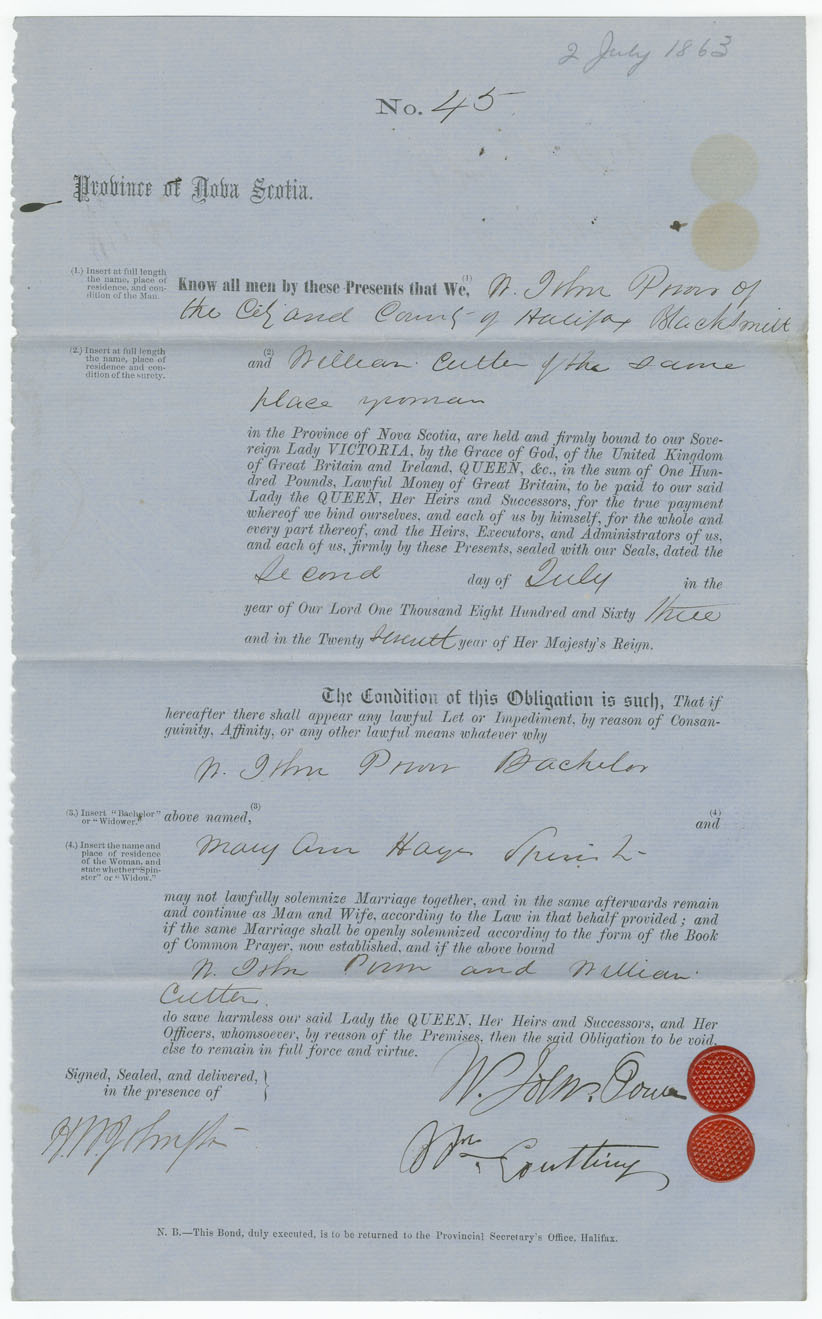 2 July 1863
No. 45
Province of Nova Scotia.
(1.) Insert at full length
the name, place of
residence, and con-
dition of the Man.
Know all men by these Presents that We,(1) W. John Power of
the City and County of Halifax Blacksmith
(2.) Insert at full length
the name, place of
residence and con-
dition of the surety.
and (2) William Cutler of the same
place yeoman
in the Province of Nova Scotia, are held and firmly bound to our Sove-
reign Lady VICTORIA, by the Grace of God, of the United Kingdom
of Great Britain and Ireland, QUEEN, &c., in the sum of One Hun-
dred Pounds, Lawful Money of Great Britain, to be paid to our said
Lady the QUEEN, Her Heirs and Successors, for the true payment
whereof we bind ourselves, and each of us by himself, for the whole and
every part thereof, and the Heirs, Executors, and Administrators of us,
and each of us, firmly by these Presents, sealed with our Seals, dated the
Second day of July in the
year of Our Lord One Thousand Eight Hundred and Sixty three
and in the Twenty seventh year of Her Majesty's Reign.
The Condition of this Obligation is such, That if
hereafter there shall appear any lawful Let or Impediment, by reason of Consan-
guinity, Affinity, or any other lawful means whatever why
W. John Power Bachelor
(3.) Insert "Bachelor"
or "Widower."
above named,(3)
(4)
and
(4.) Insert the name and
place of residence
of the Woman, and
state whether "Spin-
ster" or "Widow."
Mary Ann Hayes Spinstr
may not lawfully solemnize Marriage together, and in the same afterwards remain
and continue as Man and Wife, according to the Law in that behalf provided ; and
if the same Marriage shall be openly solemnized according to the form of the Book
of Common Prayer, now established, and if the above bound
W. John Power and William
Cutler.
do save harmless our said Lady the QUEEN, Her Heirs and Successors, and Her
Officers, whomsoever, by reason of the Premises, then the said Obligation to be void,
else to remain in full force and virtue.
Signed, Sealed, and delivered,
in the presence of
W. John. Power
H. W. Johnston
Wm.
N. B.—This Bond, duly executed, is to be returned to the Provincial Secretary's Office, Halifax.